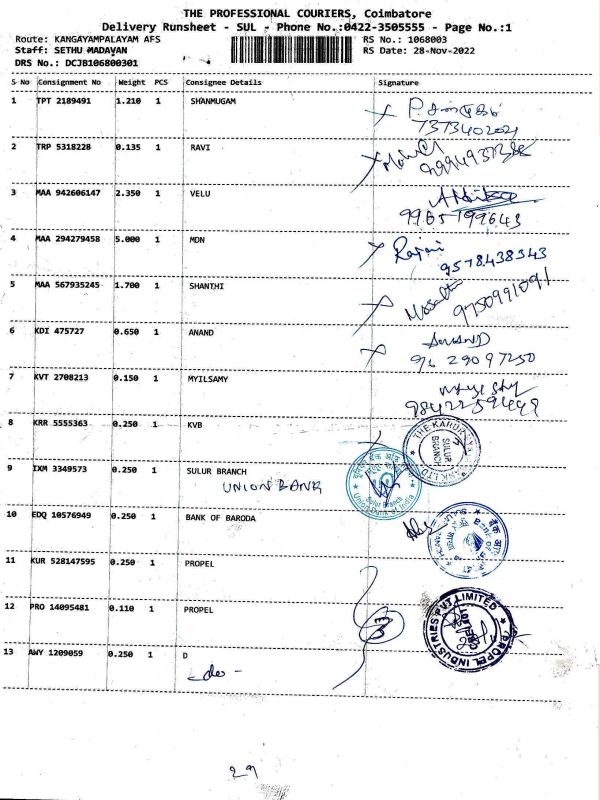 THE PROFESSIONAL COURIERS, Coimbatore
Delivery Runsheet - SUL - Phone No.:0422-3505555 - Page No.:1
Route: KANGAYAMPALAYAM AFS RS No.: 1068003
Staff: SETHU MADAVAN RS Date: 28-Nov-2022
DRS No.: DCJB106800301
S No Consignment No Weight PCS Consignee Details Signature
1 TPT 2189491 1.210 1 SHANMUGAM
2 TRP 5318228 0.135 1 RAVI
3 MAA 942606147 2.350 1 VELU
9965199643
4 MAA 294279458 5.000 1 MDN Rajni
9578438343
5 MAA 567935245 1.700 1 SHANTHI
9750991091
6 KDI 475727 0.650 1 ANAND
96 29097250
7 KVT 2708213 0.150 1 MYILSAMY
9842259499
8 KRR 5555363 0.250 1 KVB
SULUR
BRANCH
9 IXM 3349573 0.250 1 SULUR BRANCH
UNION BANK
Union Bank of India
Sulur Branch
10 EDQ 10576949 0.250 1 BANK OF BARODA
11 KUR 528147595 0.250 1 PROPEL
12 PRO 14095481 0.110 1 PROPEL
PROPEL INDUSTRIES PVT LIMITED
13 AWY 1209059 0.250 1 D
-do-
29